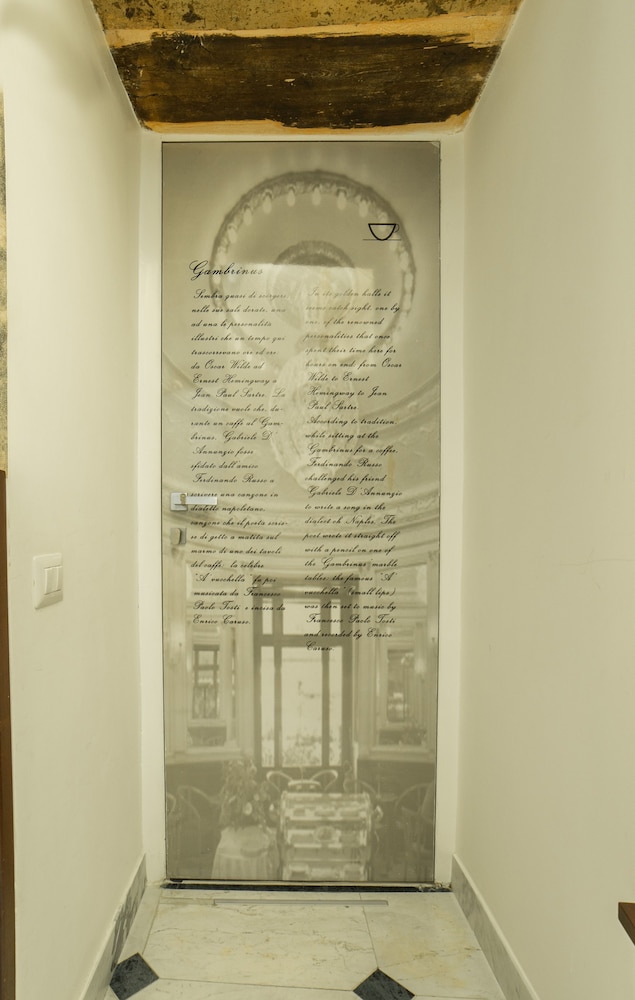 Gambrinus
Sembra quasi di scorgere
nelle sue sale dorate, una
ad una le personalità
illustri che un tempo qui
trascorrevano ore ed ore
da Oscar Wilde ad
Ernest Hemingway a
Jean Paul Sartre. La
tradizione vuole che, du-
rante un caffè al Gam-
brinus, Gabriele D'
Annunzio fosse
sfidato dall'amico
Ferdinando Russo a
scrivere una canzone in
dialetto napoletano,
canzone che il poeta scris-
se di getto a matita sul
marmo di uno dei tavoli
del caffè: la celebre
"A' vucchella" fu poi
musicata da Francesco
Paolo Tosti e incisa da
Enrico Caruso.
In its golden halls it
seems catch sight, one by
one, of the renowned
personalities that once
spent their time here for
hours on end: from Oscar
Wilde to Ernest
Hemingway to Jean
Paul Sartre.
According to tradition,
while sitting at the
Gambrinus for a coffee,
Ferdinando Russo
challenged his friend
Gabriele D'Annunzio
to wrote a song in the
dialect oh Naples. The
poet wrote it straight off
with a pencil on one of
the Gambrinus' marble
tables: the famous "A'
vucchella" (small lips)
was then set to music by
Francesco Paolo Tosti
and recorded by Enrico
Caruso.